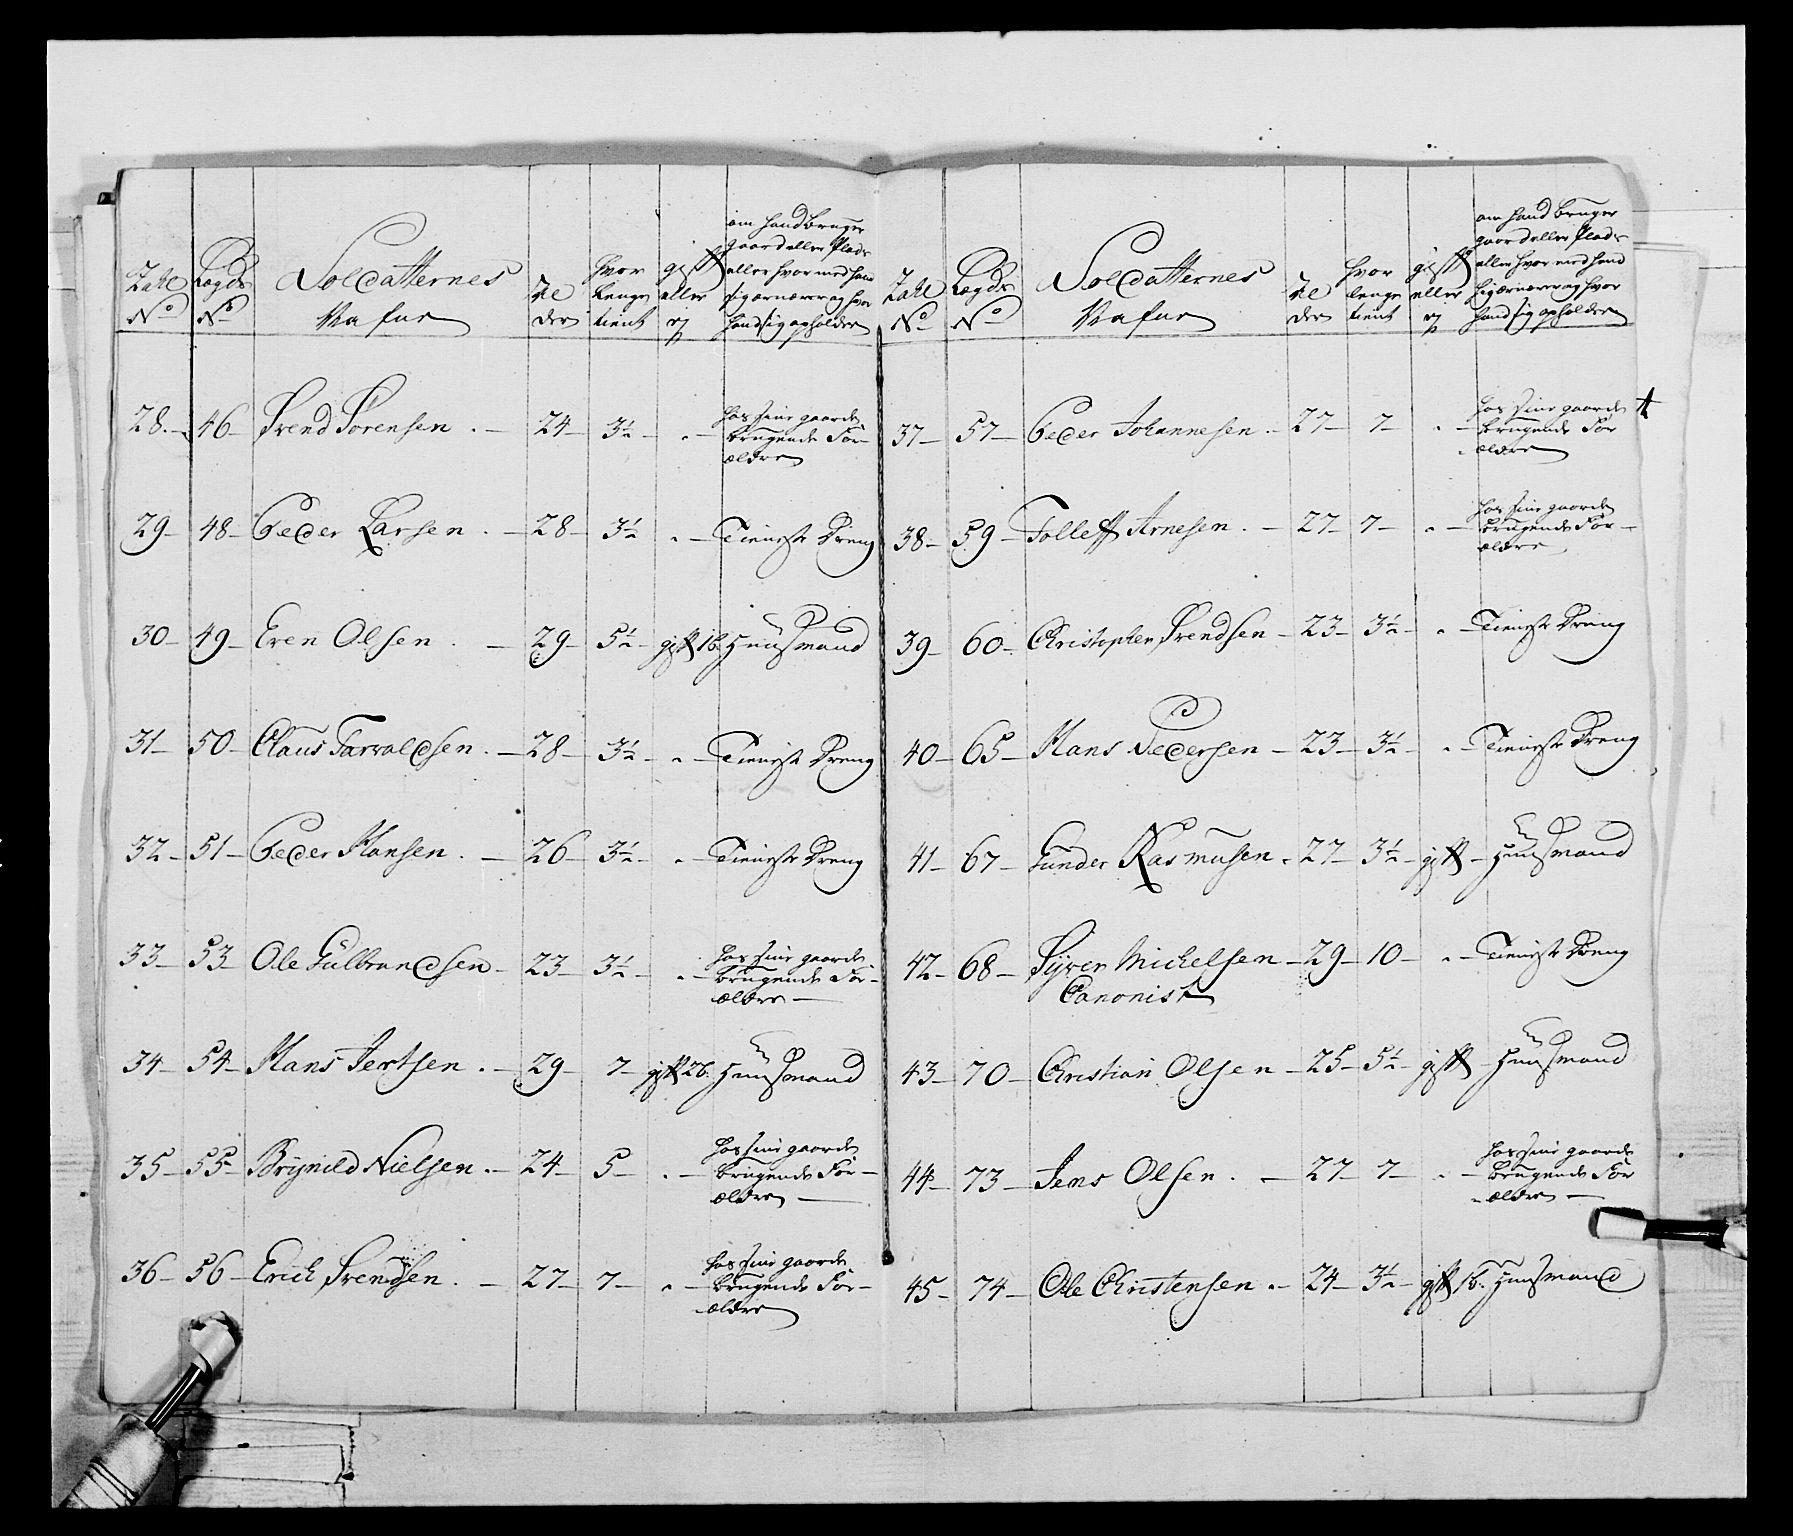 Tahl No
Lægds No
Soldatternes Nafne
Al der
hvor lenge tient
gift eller ej
om hand bruger
gaard eller Plads
eller hvor med hand
sig ærnærer og hvor
hand sig opholder
28. 46 Svend Sørensen . 24 3½ . hos sine gaard
brugende For-
ældre
29 48 Peder Larsen . 28 3½ . Tieneste Dreng
30 49 Even Olsen . 29 5½ gift 1 b. Huusmand
31 50 Claus Tarvaldsen . 28 3½ . Tieneste Dreng
32 51 Peder Hansen . 26 3½ . Tieneste Dreng
33 53 Ole Gulbrandsen 23 3½ . hos sine gaard
brugende For-
ældre
34 54 Hans Jertsen . 29 7 gift 2 b. Huusmand
35 55 Brynild Nielsen . 24 5 . hos sine gaard
brugende For-
ældre
36 56 Erich Svendsen . 27 7 . hos sine gaard
brugende For-
ældre
Tahl No
Lægds No
Soldatternes Nafne
Al der
hvor lenge tient
gift eller ej
om hand bruger
gaard eller Plads
eller hvor med hand
sig ærnærer og hvor
hand sig opholder
37 57 Peder Johannesen . 27 7 . hos sine gaard
brugende For
ældre
38 59 Tolleff Arnesen . 27 7 . hos sine gaard
brugende For-
ældre
39 60 Christopher Svendsen 23 3½ . Tieneste Dreng
40 65 Hans Pedersen 23 3½ . Tieneste Dreng
41 67 Gunder Rasmusen . 27 3½ gift Huusmand
42 68 Syver Michelsen 29 10 . Tieneste Dreng
Canonist
43 70 Christian Olsen 25 5½ gift Huusmand
44 73 Jens Olsen . 27 7 . hos sine gaard
brugende For
ældre
45 74 Ole Christensen . 24 3½ gift 1 b. Huusmand